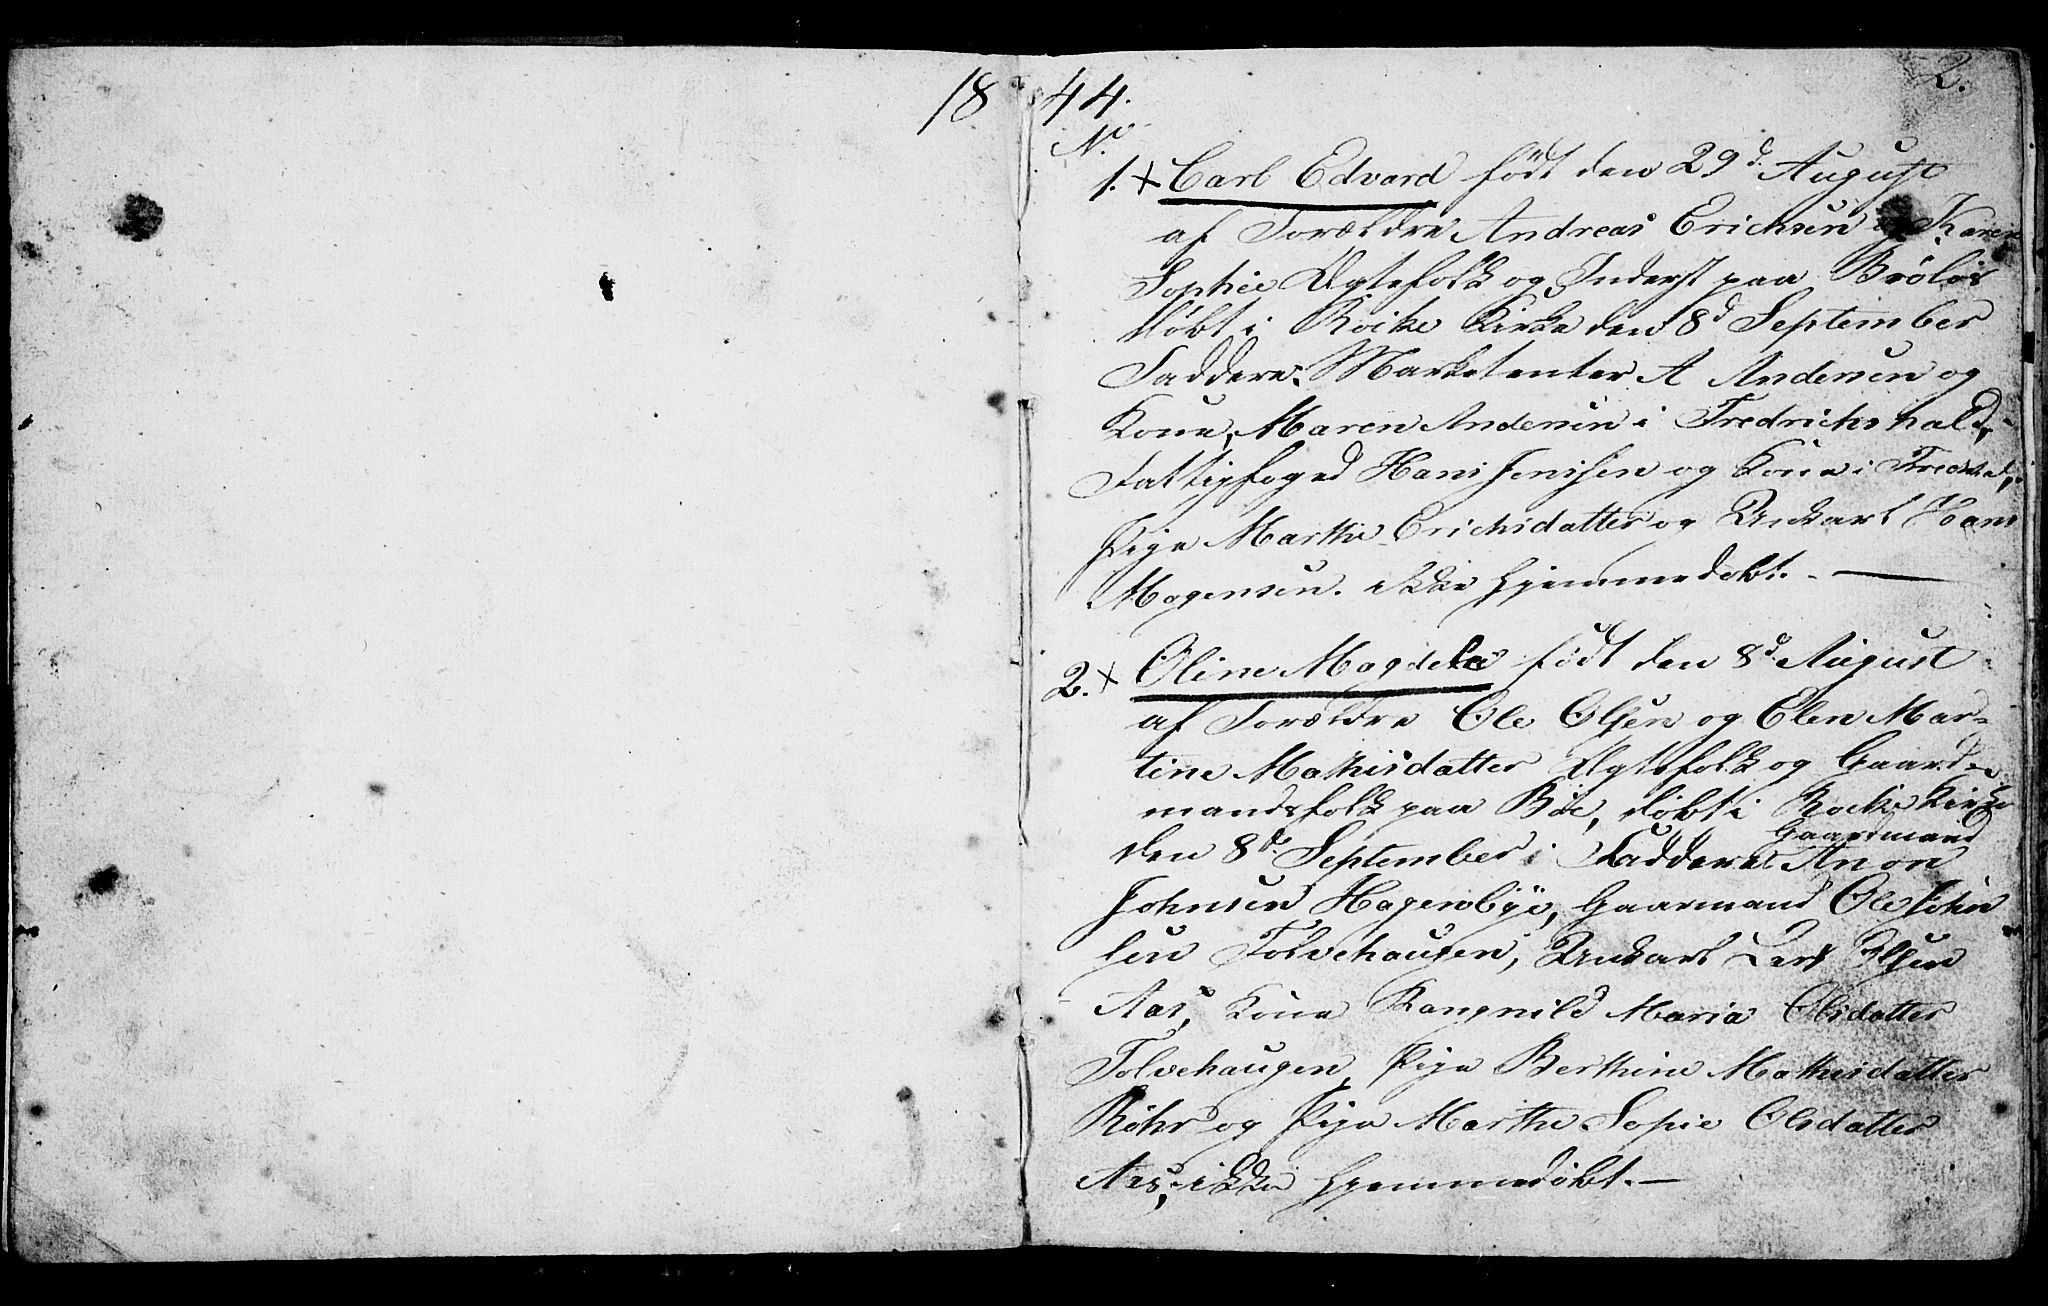 1844.
2.
No
1. + Carl Edvard født den 29d. August
af Forældre Andreas Erichsen og Karen
Sophie Ægtefolk og Inderst paa
døbt i Rokke Kirke den 8d September
Faddere: Marketenter A Andersen og
Kone, Maren Andersen i Fredrichshald,
Fattigfoged Hans Jenssen og Kone i
Pige Marthe Erichsdatter og Unkarl Hans
Mogensen. ikke hjemmedøbt. —
2. + Oline Magdele født den 8d. August
af Forældre Ole Olsen og Elen Mar-
tine Mathisdatter Ægtefolk og Gaard-
mandsfolk paa Bøe, døbt i Rocke Kirke
den 8de September; Faddere: Gaardmand Anon
Johnsen Hagenbye, Gaarmand Ole John
sen Tolvehaugen, Unkarl Lars Olsen
Aas, Kone Rangnild Maria Olsdatter
Tolvehaugen, Pige Berthine Mathisdatter
Röhr og Pige Marthe Sopie Olsdatter
Aas, ikke hjemmedøbt. —